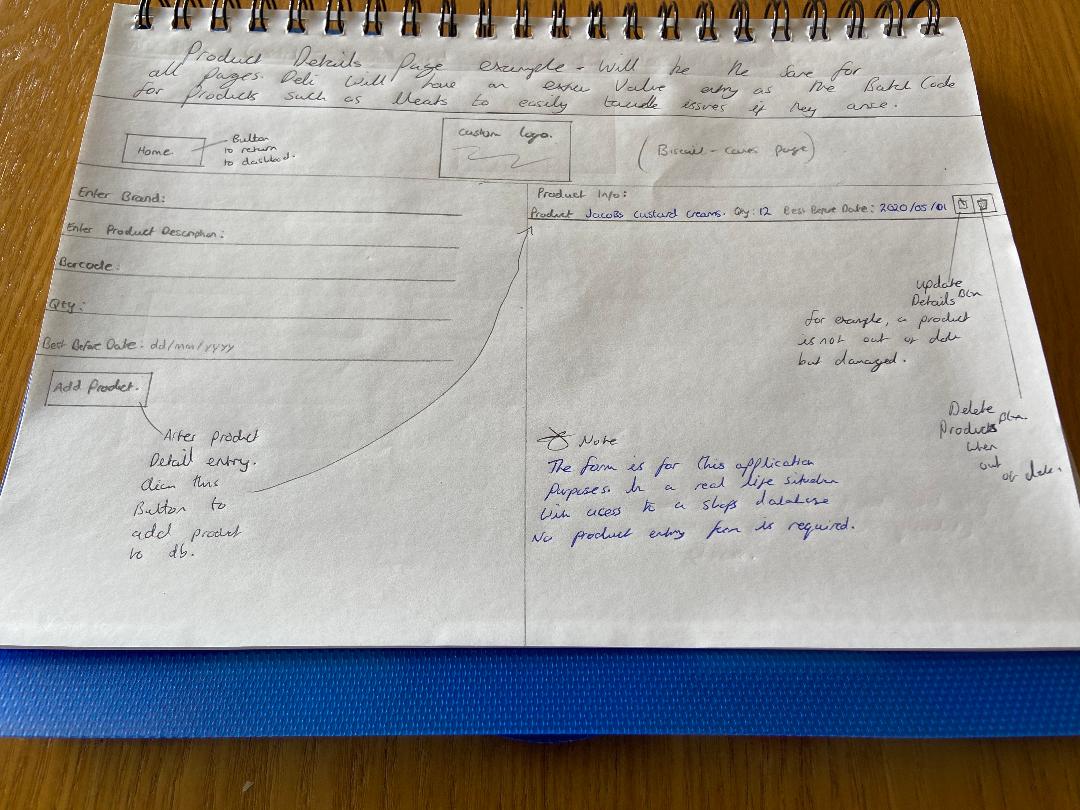 Product Details Page example - Will be the same for
all pages. Deli will have an extra value entry as the Batch Code
for products such as Meats to easily tackle issues if they arise.
Home
Button
to return
to dashboard.
Custom logo.
(Biscuit - cakes page)
Enter Brand:
Enter Product Description:
Barcode:
Qty:
Best Before Date: dd/mm/yyyy
Add Product.
After product
Detail entry.
click this
Button to
add product
to db.
Product Info:
Product Jacobs custard creams. Qty: 12 Best Before Date: 2020/05/01
update
Details Btn
for example, a product
is not out of date
but damaged.
Delete
Products Btn
when
out
of date.
Note
The form is for this application
Purposes. In a real life situation
with acess to a shops database
No product entry form is required.